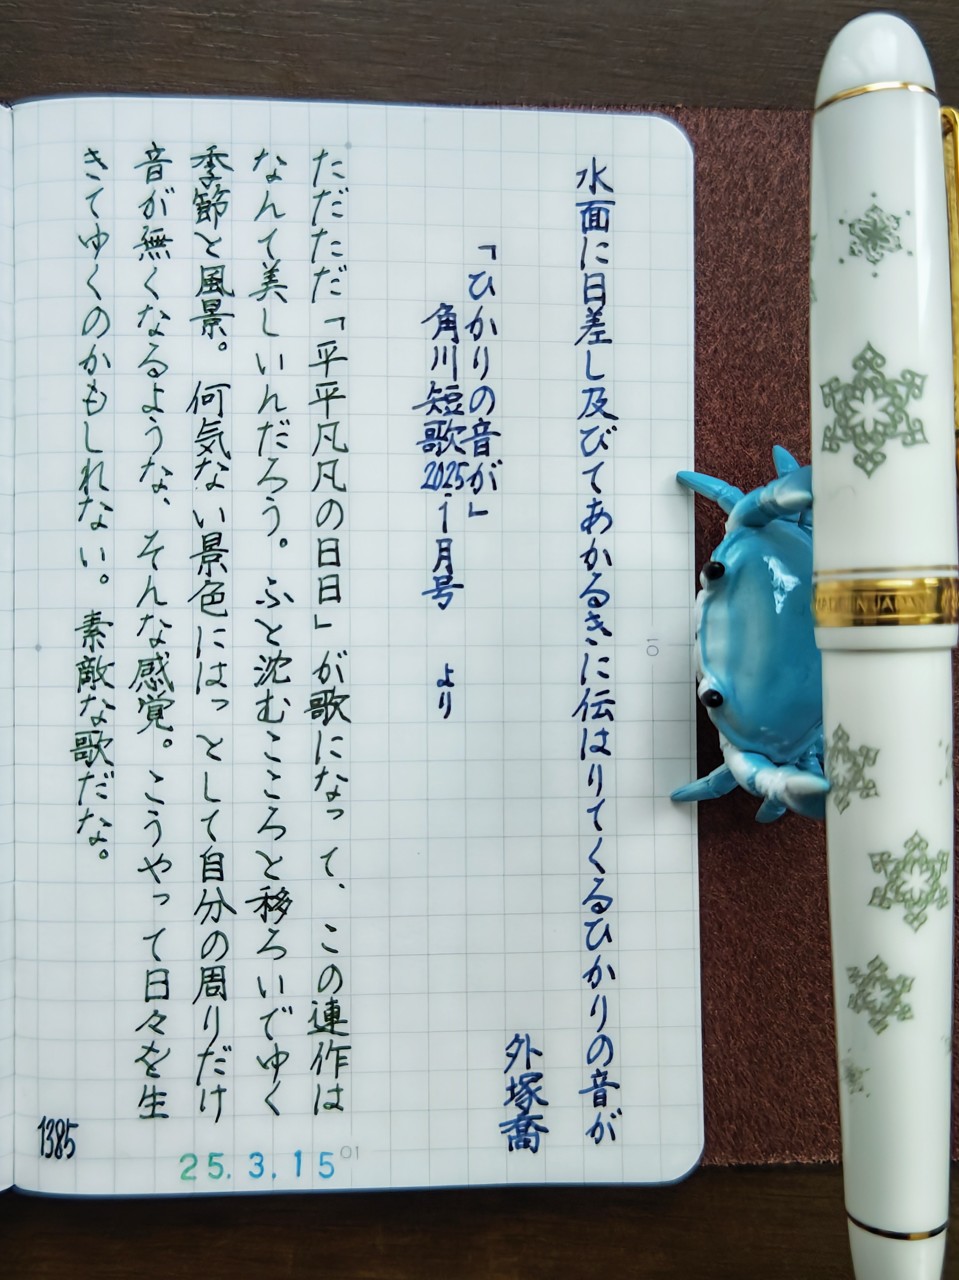 水面に日差し及びてあかるきに伝はりてくるひかりの音が
外塚喬
「ひかりの音が」
角川短歌2025・1月号　より
ただただ「平平凡凡の日日」が歌になって、この連作は
なんて美しいんだろう。ふと沈むこころと移ろいでゆく
季節と風景。何気ない景色にはっとして自分の周りだけ
音が無くなるような、そんな感覚。こうやって日々を生
きてゆくのかもしれない。素敵な歌だな。
1385
25.3.15
01
10
MADE IN JAPAN